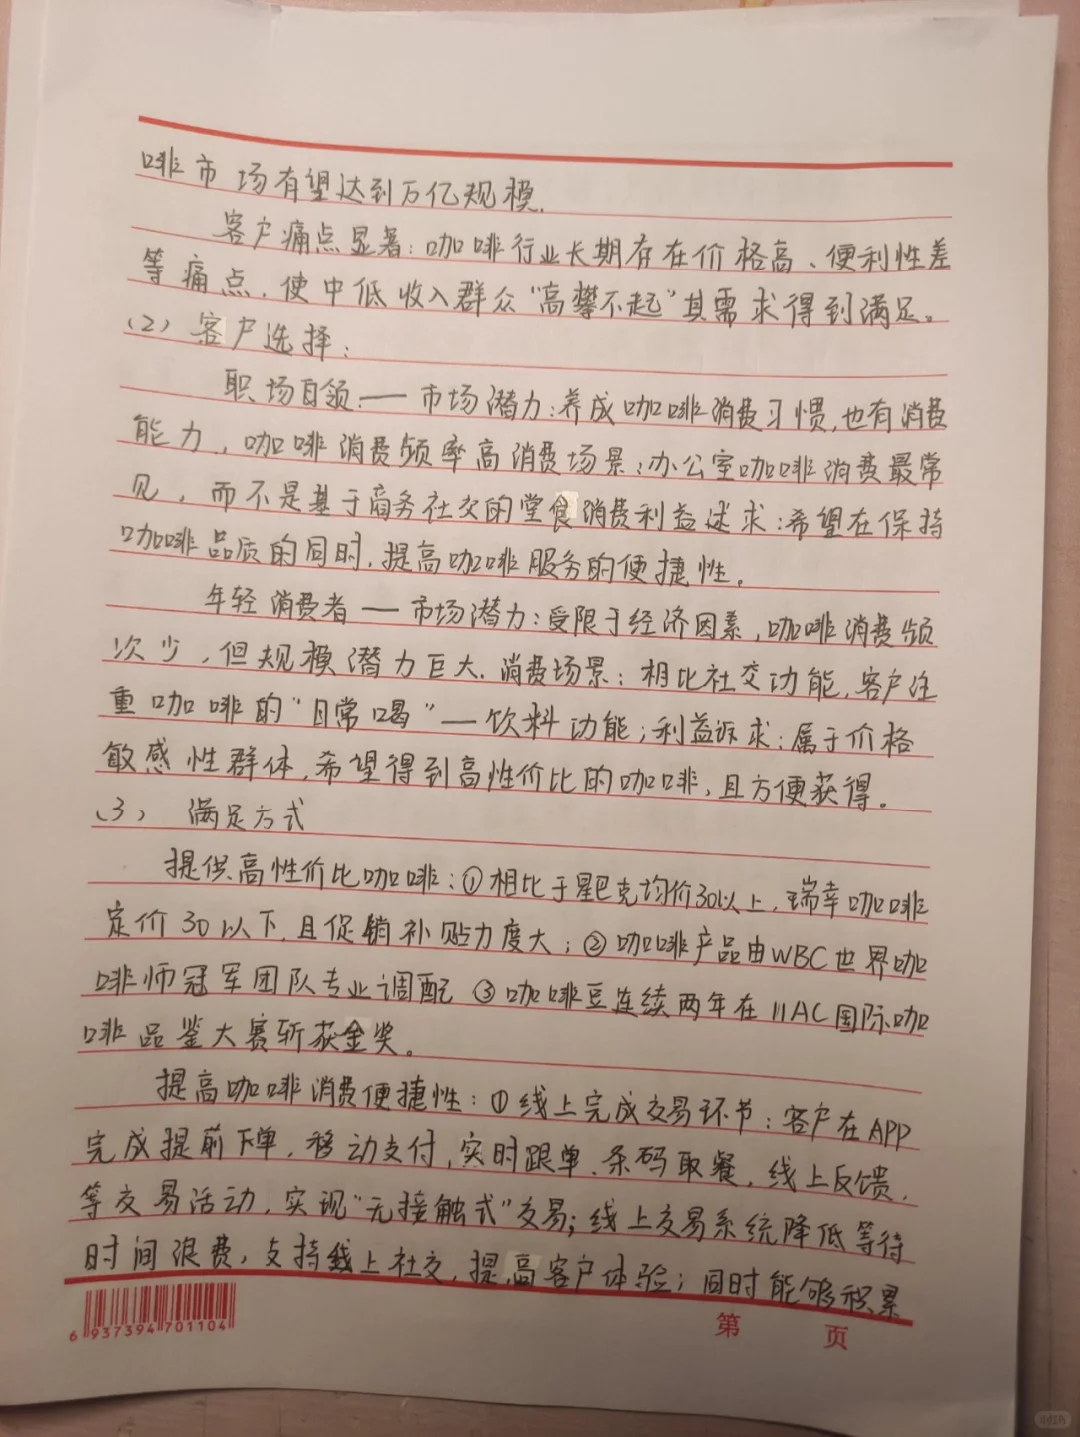 啡市场有望达到万亿规模.
客户痛点显著:咖啡行业长期存在价格高、便利性差
等痛点.使中低收入群众"高攀不起"其需求得到满足。
(2)客户选择:
职场白领.——市场潜力:养成咖啡消费习惯,也有消费
能力,咖啡消费频率高消费场景:办公室咖啡消费最常
见,而不是基于商务社交的堂食消费利益述求:希望在保持
咖啡品质的同时,提高咖啡服务的便捷性.
年轻消费者—市场潜力:受限于经济因素,咖啡消费频
次少,但规模潜力巨大.消费场景:相比社交功能,客户注
重咖啡的"日常喝"—饮料功能;利益诉求:属于价格
敏感性群体,希望得到高性价比的咖啡,且方便获得。
(3) 满足方式
提供高性价比咖啡:①相比于星巴克均价30以上,瑞幸咖啡
定价30以下,且促销补贴力度大;②咖啡产品由WBC世界咖
啡师冠军团队专业调配③咖啡豆连续两年在IIAC国际咖
啡品鉴大赛斩获金奖。
提高咖啡消费便捷性:①线上完成交易环节:客户在APP
完成提前下单,移动支付,实时跟单、条码取餐,线上反馈,
等交易活动,实现"无接触式"交易;线上交易系统降低等待
时间浪费,支持线上社交,提高客户体验;同时能够积累
6937394701104
第 页
小红书